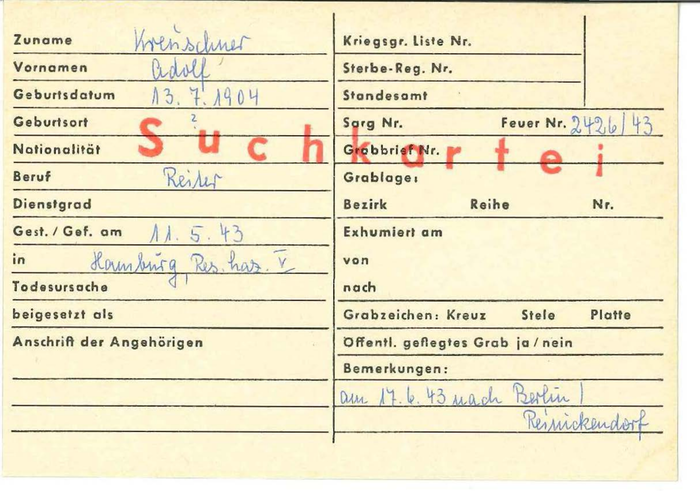 Zuname Kreuschner
Vornamen Adolf
Geburtsdatum 13.7.1904
Geburtsort ?
Nationalität
Beruf Reiter
Dienstgrad
Gest. / Gef. am 11.5.43
in Hamburg, Res. Laz. V
Todesursache
beigesetzt als
Anschrift der Angehörigen
Suchkartei
Kriegsgr. Liste Nr.
Sterbe-Reg. Nr.
Standesamt
Sarg Nr. Feuer Nr. 2426/43
Grabbrief Nr.
Grablage:
Bezirk Reihe Nr.
Exhumiert am
von
nach
Grabzeichen: Kreuz Stele Platte
Öffentl. geflegtes Grab ja / nein
Bemerkungen:
am 17.6.43 nach Berlin /
Reinickendorf